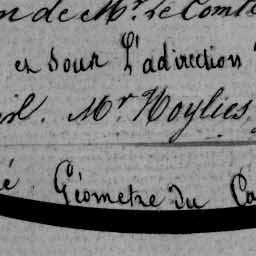 de Mr. Le Comte
et sour L'adirection
Mr Noylies
Géometre Du Ca